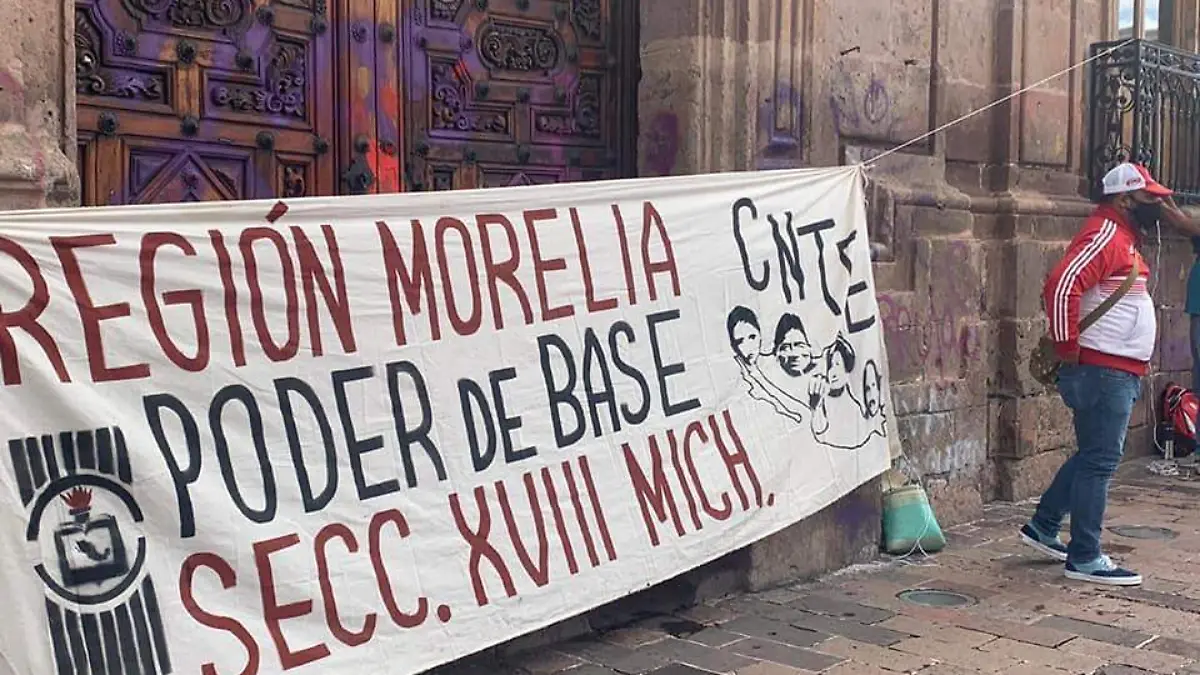 REGIÓN MORELIA
CNTE
PODER DE BASE
SECC. XVIII MICH.